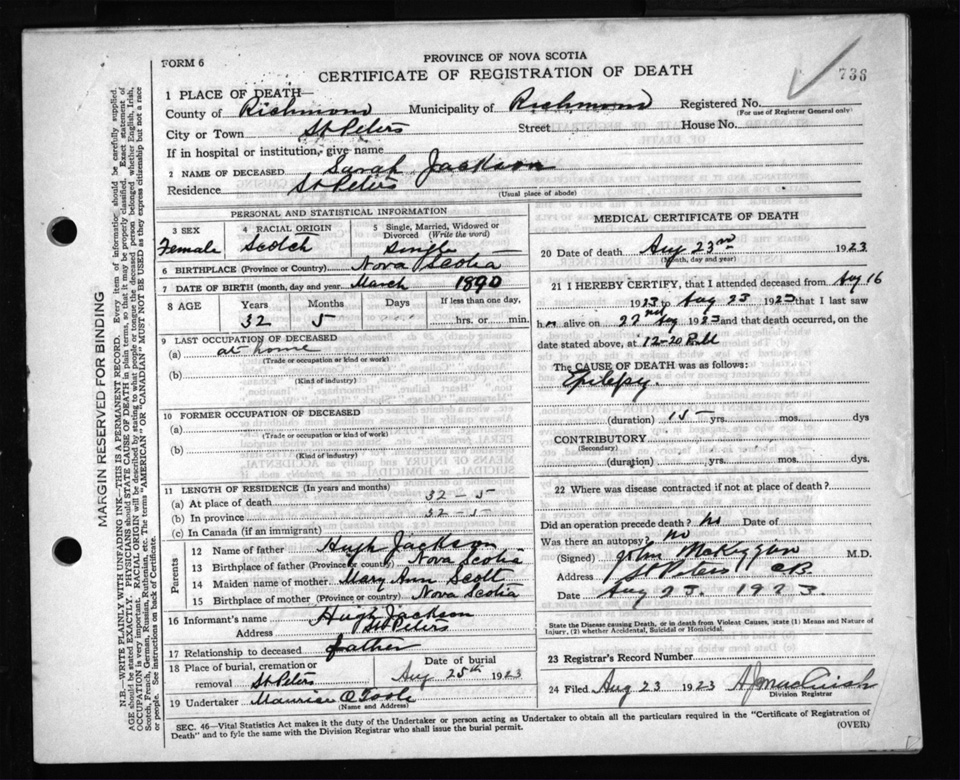 FORM 6
PROVINCE OF NOVA SCOTIA
CERTIFICATE OF REGISTRATION OF DEATH
736
1 PLACE OF DEATH—
County of Richmond Municipality of Richmond Registered No.
(For use of Registrar General only)
City or Town St Peters Street House No.
If in hospital or institution, give name
2 NAME OF DECEASED Sarah Jackson
Residence St Peters
(Usual place of abode)
PERSONAL AND STATISTICAL INFORMATION
3 SEX 4 RACIAL ORIGIN 5 Single, Married, Widowed or Divorced (Write the word)
Female Scotch Single
6 BIRTHPLACE (Province or Country) Nova Scotia
7 DATE OF BIRTH (month, day and year) March 1890
8 AGE Years Months Days If less than one day,
32 5 hrs. or min.
9 LAST OCCUPATION OF DECEASED
(a) at home
(Trade or occupation or kind or work)
(b)
(Kind of industry)
10 FORMER OCCUPATION OF DECEASED
(a)
(Trade or occupation or kind of work)
(b)
(Kind of industry)
11 LENGTH OF RESIDENCE (In years and months)
(a) At place of death 32 - 5
(b) In province 32 - 5
(c) In Canada (if an immigrant)
Parents
12 Name of father Hugh Jackson
13 Birthplace of father (Province or country) Nova Scotia
14 Maiden name of mother Mary Ann Scott
15 Birthplace of mother (Province or country) Nova Scotia
16 Informant's name Hugh Jackson
Address St Peters
17 Relationship to deceased father
18 Place of burial, cremation or removal St Peters Date of burial Aug 25th 1923
19 Undertaker Maurice O'Toole
(Name and Address)
MEDICAL CERTIFICATE OF DEATH
20 Date of death Aug 23rd 1923
(Month, day and year)
21 I HEREBY CERTIFY, that I attended deceased from Aug 16
1923 to Aug 23 1923 that I last saw
h alive on 22nd Aug 1923 and that death occurred, on
date stated above, at 12-20
The CAUSE OF DEATH was as follows:
Epilepsy.
(duration) 15 yrs. mos. dys
CONTRIBUTORY
(Secondary)
(duration) yrs. mos. dys.
22 Where was disease contracted if not at place of death?
Did an operation precede death? no Date of
Was there an autopsy? no
(Signed) John McKeggan M.D.
Address St Peters CB.
Date Aug 23. 1923
State the Disease causing Death, or in death from Violent Causes, state (1) Means and Nature of Injury, (2) whether Accidental, Suicidal or Homicidal.
23 Registrar's Record Number
24 Filed Aug 23 1923
Division Registrar
SEC. 46—Vital Statistics Act makes it the duty of the Undertaker or person acting as Undertaker to obtain all the particulars required in the "Certificate of Registration of
Death" and to fyle the same with the Division Registrar who shall issue the burial permit. (OVER)
MARGIN RESERVED FOR BINDING
N.B.—WRITE PLAINLY WITH UNFADING INK—THIS IS A PERMANENT RECORD. Every item of information should be carefully supplied.
AGE should be stated EXACTLY. PHYSICIANS should STATE CAUSE OF DEATH in plain terms, so that it may be properly classified. Exact statement of
OCCUPATION is very important. RACIAL ORIGIN will be described by stating to what people or tongue the deceased person belonged whether English, Irish,
Scotch, French, German, Russian, Ruthenian, etc. The terms "AMERICAN" OR "CANADIAN" MUST NOT BE USED as they express citizenship but not a race
or people. See instructions on back of Certificate.